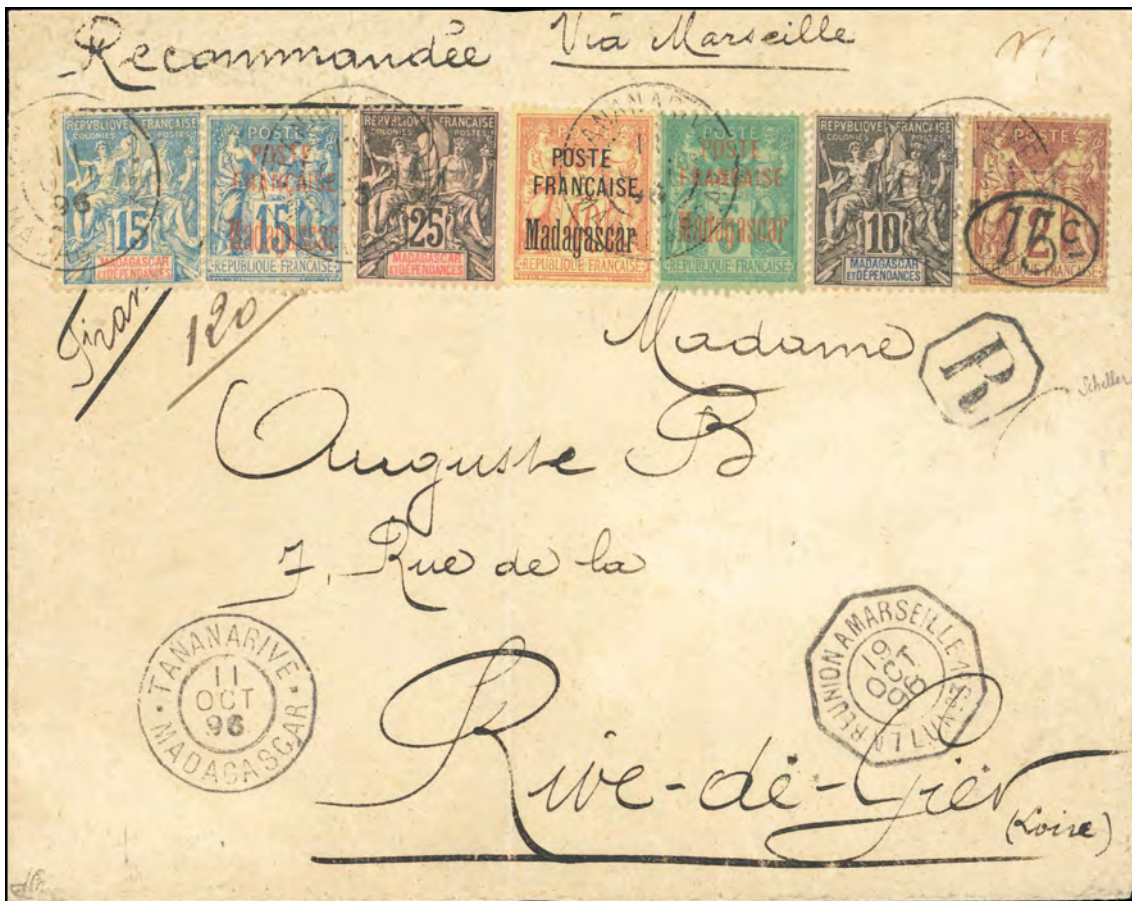 Recommandée Via Marseille
REPUBLIQUE FRANÇAISE
COLONIES POSTES
15
MADAGASCAR
ET DÉPENDANCES
POSTE
POSTE
FRANÇAISE
15
Madagascar
REPUBLIQUE FRANÇAISE
REPUBLIQUE FRANÇAISE
COLONIES POSTES
25
MADAGASCAR
ET DÉPENDANCES
POSTE
POSTE
FRANÇAISE
Madagascar
REPUBLIQUE FRANÇAISE
POSTE
POSTE
FRANÇAISE
Madagascar
REPUBLIQUE FRANÇAISE
REPUBLIQUE FRANÇAISE
COLONIES POSTES
10
MADAGASCAR
ET DÉPENDANCES
POSTE
REPUBLIQUE FRANÇAISE
96
120
Madame
R
Scheller
Auguste B
7, Rue de la
TANANARIVE
11
OCT
96
MADAGASCAR
LA REUNION A MARSEILLE
19
OCT
96
Rive-de-Gier
(Loire)